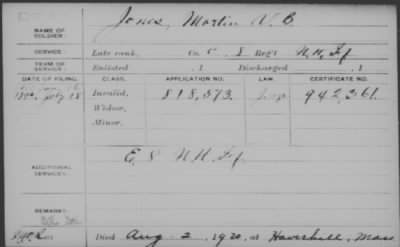 NAME OF SOLDIER: Jones, Martin V. B.
SERVICE: Late rank, Co. C 8 Reg't N.H. Inf
TERM OF SERVICE: Enlisted , 1 Discharged , 1
DATE OF FILING. CLASS. APPLICATION NO. LAW. CERTIFICATE NO.
Invalid, 818,573. 942,361.
Widow,
Minor,
ADDITIONAL SERVICES: E. 8 N.H. Inf
REMARKS:
Died Aug-2, 1920, at Haverhill, Mass